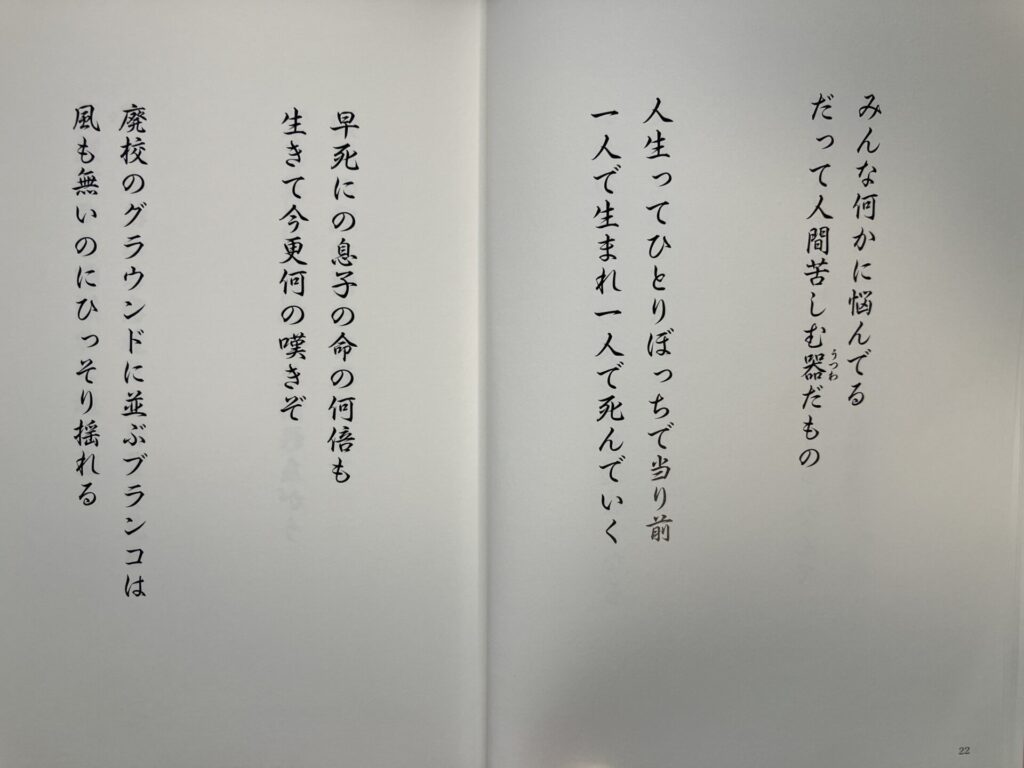 みんな何かに悩んでる
だって人間苦しむ器だもの
うつわ
人生ってひとりぼっちで当り前
一人で生まれ一人で死んでいく
22
早死にの息子の命の何倍も
生きて今更何の嘆きぞ
廃校のグラウンドに並ぶブランコは
風も無いのにひっそり揺れる